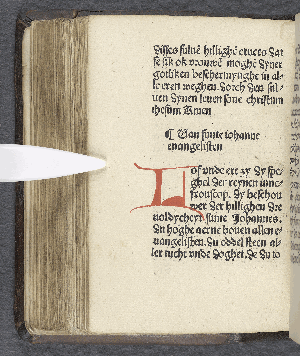 disses suluē hillighē cruces dat
se sik ok vrouwē moghē dyner
gotliken beschermynghe in al-
leuren weghen. dorch den sul-
uen dynen leuen sone christum
ihesum Amen
¶ Uan sunte iohanne
euangelisten
Lof unde ere zy dy spe-
ghel der reynen iunc-
frouscop. dy beschou
wer der hillighen dre
uoldycheyt sunte Johannes.
du hoghe aerne bouen allen e-
uangelisten. du eddel steen al-
ler tucht unde doghet. de du to